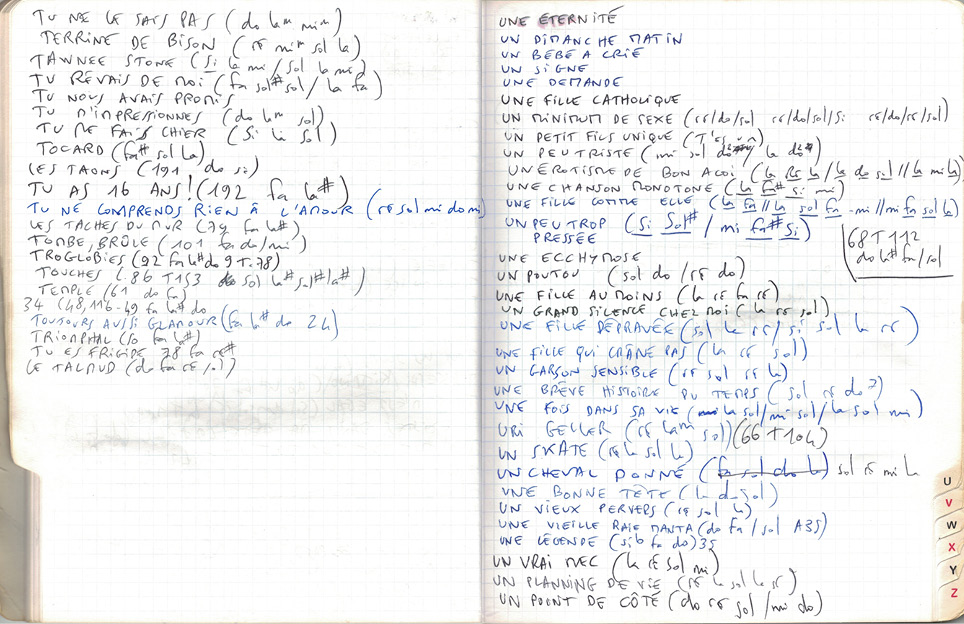 TU NE LE SAIS PAS (do la^m mi^m)
TERRINE DE BISON (ré mi^m sol la)
TAWNEE STONE (Si la mi / sol la mi)
TU RÊVAIS DE MOI (fa sol# sol / la fa)
TU NOUS AVAIS PROMIS
TU M'IMPRESSIONNES (do la^m sol)
TU ME FAIS CHIER (Si la sol)
TOCARD (fa# sol la)
LES TAONS (191 do si)
TU AS 16 ANS! (192 fa la#)
TU NE COMPRENDS RIEN À L'AMOUR (ré sol mi do mi)
LES TACHES DU MUR (79 fa la#)
TOMBE, BRÛLE (101 fa do/mi)
TROGLOBIES (92 fa la# do 9 T.78)
TOUCHES (.86 T153 sol la# sol#/a#)
TEMPLE (61 do fa)
34 (48,116-49 fa la# do
TOUJOURS AUSSI GLAMOUR (fa la# do 24)
TRIOMPHAL (10 fa la#)
TU ES FRIGIDE 78 fa ré#
LE TALMUD (do fa ré sol)
UNE ÉTERNITÉ
UN DIMANCHE MATIN
UN BÉBÉ A CRIÉ
UN SIGNE
UNE DEMANDE
UNE FILLE CATHOLIQUE
UN MINIMUM DE SEXE (ré/do/sol ré/do/sol/si ré/do/ré/sol)
UN PETIT FILS UNIQUE (T'ES
UN PEU TRISTE (mi sol do la do#)
UN ÉROTISME DE BON ALOI (la Ré la / la do sol // la mi la)
UNE CHANSON MONOTONE (la fa# si mi)
UNE FILLE COMME ELLE (la fa // la sol fa - mi // mi fa sol la)
UN PEU TROP (Si Sol# / mi fa# Si)
PRESSÉE
68 T 112
do la# fa / sol
UNE ECCHYMOSE
UN POUTOU (sol do / ré do)
UNE FILLE AU MOINS (la ré fa ré)
UN GRAND SILENCE CHEZ MOI (la ré sol)
UNE FILLE DÉPRAVÉE (sol la ré / si sol la ré)
UNE FILLE QUI CRÂNE PAS (la ré sol)
UN GARÇON SENSIBLE (ré sol ré la)
UNE BRÈVE HISTOIRE DU TEMPS (sol ré do 7)
UNE FOIS DANS SA VIE (la sol / mi sol / la sol mi)
URI GELLER (ré la^m sol) (66 T 104)
UN SKATE (ré la sol la)
UN CHEVAL DONNÉ (fa sol do la) sol ré mi la
UNE BONNE TÊTE (la do sol)
UN VIEUX PERVERS (ré sol la)
UNE VIEILLE RAIE MANTA (do fa / sol A35)
UNE LÉGENDE (sib fa do) 35
UN VRAI MEC (la ré sol mi)
UN PLANNING DE VIE (ré la sol la ré)
UN POINT DE CÔTÉ (do ré sol / mi do)
U
V
W
X
Y
Z